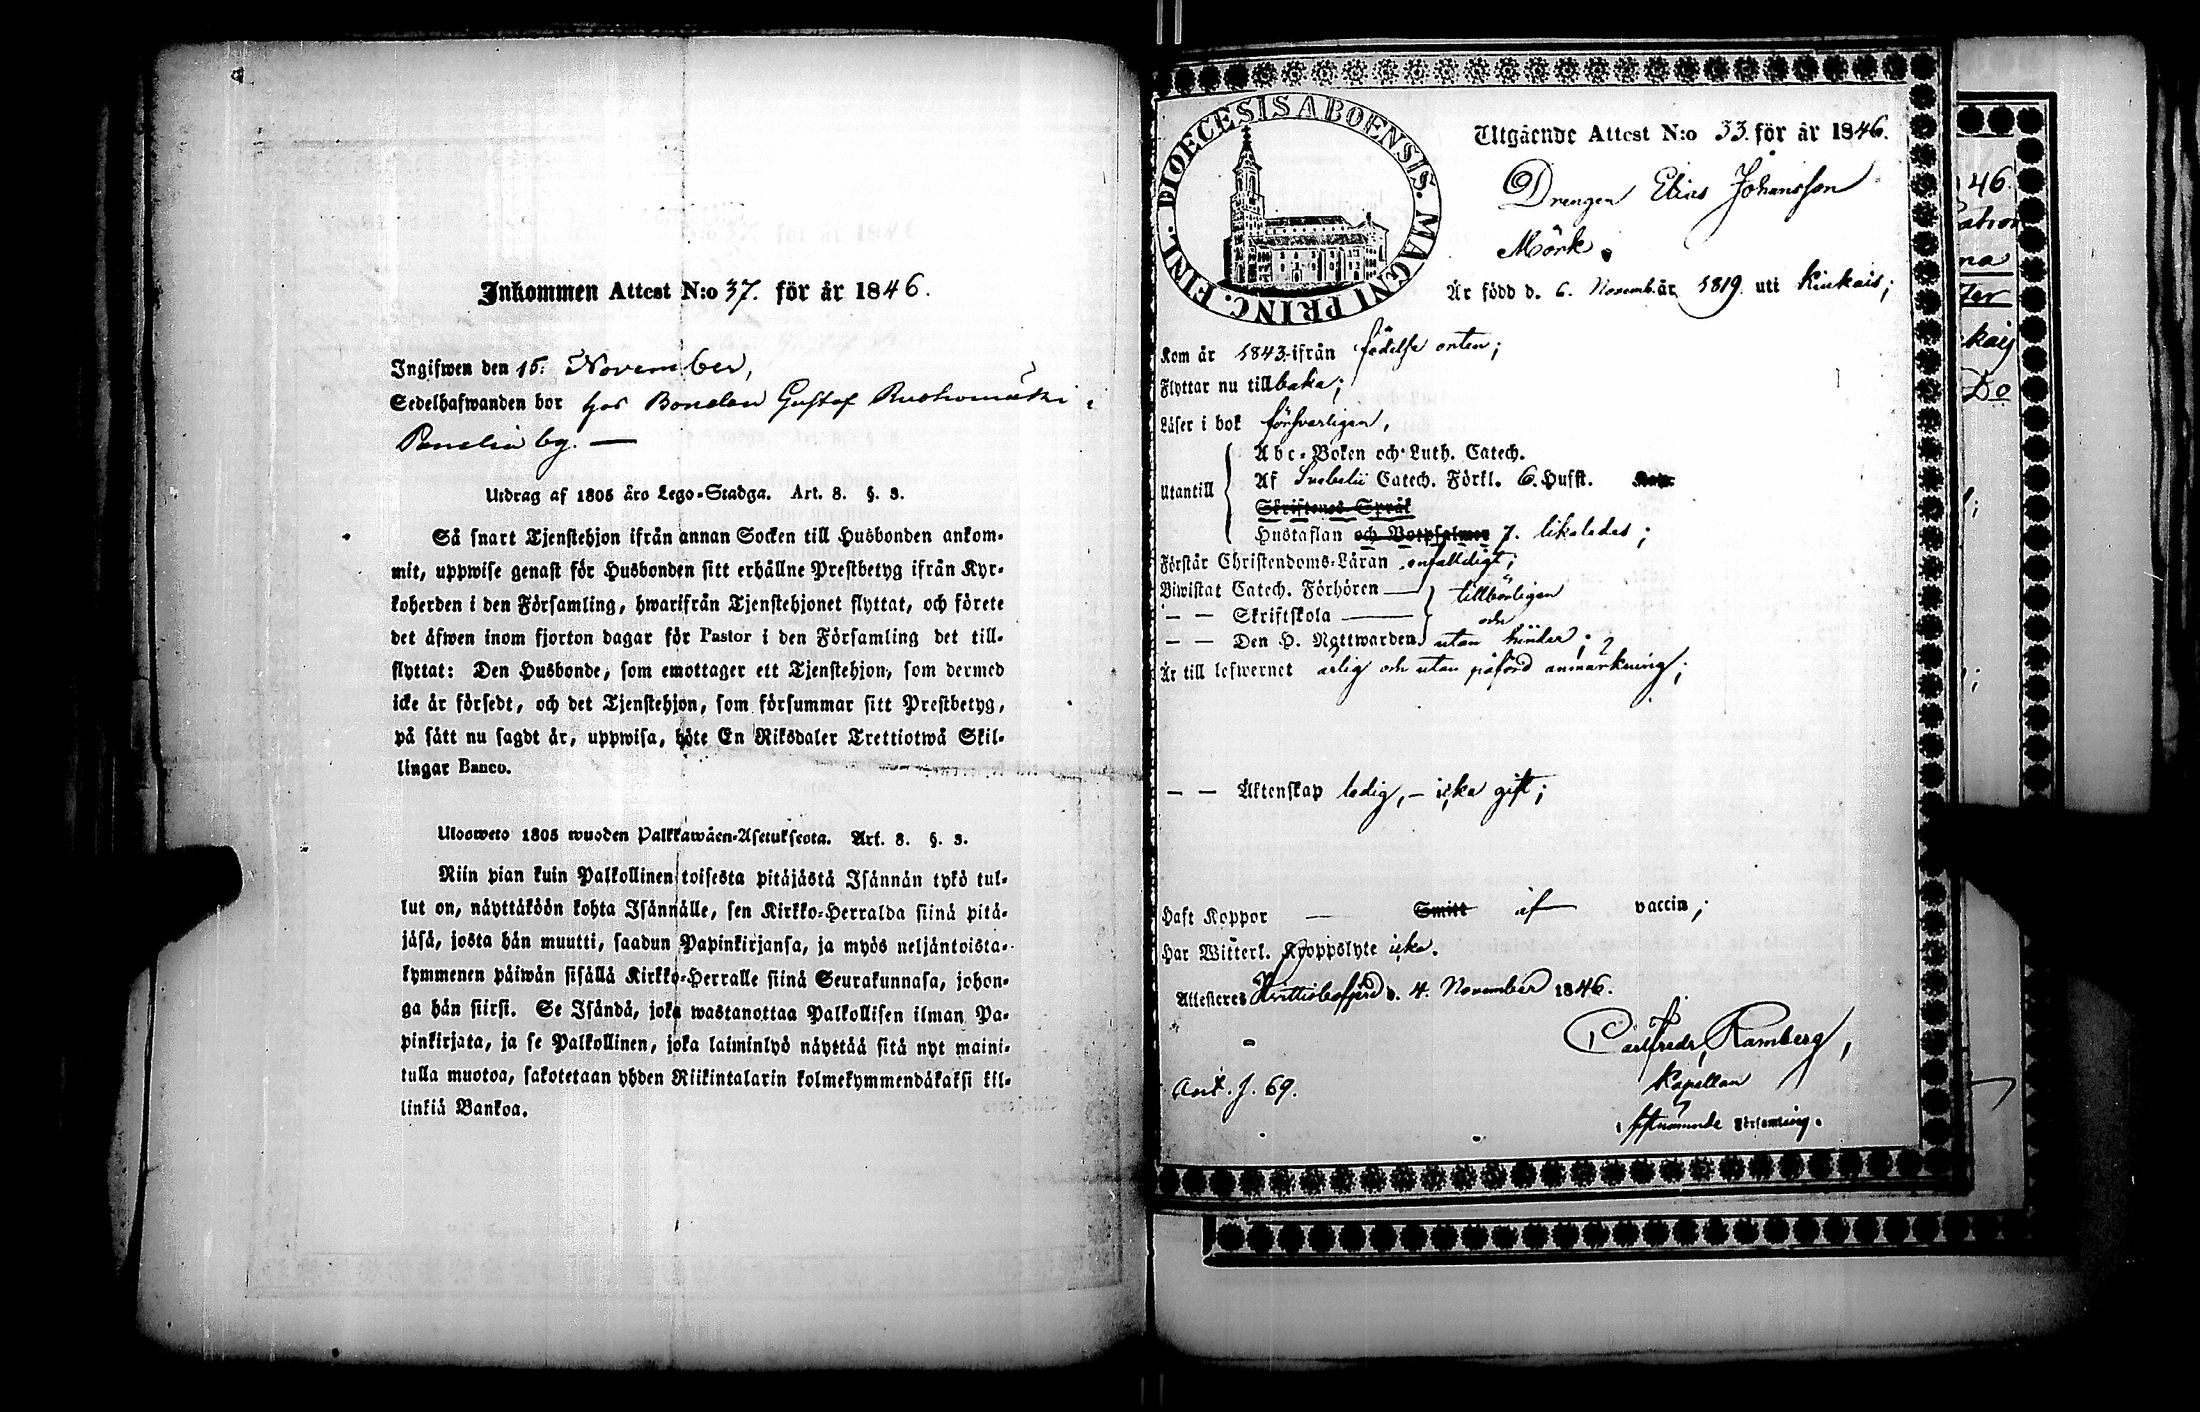 Inkommen Attest N:o 37. för år 1846.
Ingifwen den 15. November,
Sedelhafwanden bor hos Bonden Gustaf Ruohomäki i
Panelia by. —
Utdrag af 1805 års Lego-Stadga. Art. 8. §. 3.
Så snart Tjenstehjon ifrån annan Socken till Husbonden ankom-
mit, uppwise genast för Husbonden sitt erhållne Prestbetyg ifrån Kyr-
koherden i den Församling, hwarifrån Tjenstehjonet flyttat, och förete
det äfwen inom fjorton dagar för Pastor i den Församling det till-
flyttat: Den Husbonde, som emottager ett Tjenstehjon, som dermed
icke är försedt, och det Tjenstehjon, som försummar sitt Prestbetyg,
på sätt nu sagdt är, uppwisa, böte En Riksdaler Trettiotwå Skil-
lingar Banco.
Ulosweto 1805 wuoden Palkkawäen-Asetuksesta. Art. 8. §. 3.
Niin pian kuin Palkollinen toisesta pitäjästä Isännän tykö tul-
lut on, näyttäköön kohta Isännälle, sen Kirkko-Herralda siinä pitä-
jäsä, josta hän muutti, saadun Papinkirjansa, ja myös neljäntoista-
kymmenen päiwän sisällä Kirkko-Herralle siinä Seurakunnasa, johon-
ga hän siirsi. Se Isändä, joka wastanottaa Palkollisen ilman Pa-
pinkirjata, ja se Palkollinen, joka laiminlyö näyttää sitä nyt maini-
tulla muotoa, sakotetaan yhden Riikintalarin kolmekymmendäkaksi kil-
linkiä Bankoa.
DIOECESIS ABOENSIS. MAGNI PRINC. FINL.
Utgående Attest N:o 33. för år 1846.
Drengen Elias Johansson
Mörk.
Är född d. 6. Novemb. år 1819. uti Kiukais;
Kom år 1843. ifrån födelse orten;
Flyttar nu tillbaka;
Läser i bok försvarligen,
Utantill
Abc-Boken och Luth. Catech.
Af Svebelii Catech. Förkl. 6. Hufst.
Skriftenes Språk
Hustaflan och Botpsalmer 7. likaledes;
Förstår Christendoms-Läran enfaldigt;
Biwistat Catech. Förhören — tillbörligen
— — Skriftskola — och
— — Den H. Nattwarden utan hinder;
Är till lefwernet ärlig och utan påförd anmärkning;
— — Äktenskap ledig, — icke gift;
Haft Koppor — Smitt af vaccin;
Har Witterl. Kroppslyte icke.
Attesteres Hvittisbofjerd d. 4. November 1846.
Carl Fredr. Ramberg,
Kapellan
i förstnämnde Församling.
Ant. f. 69.
46